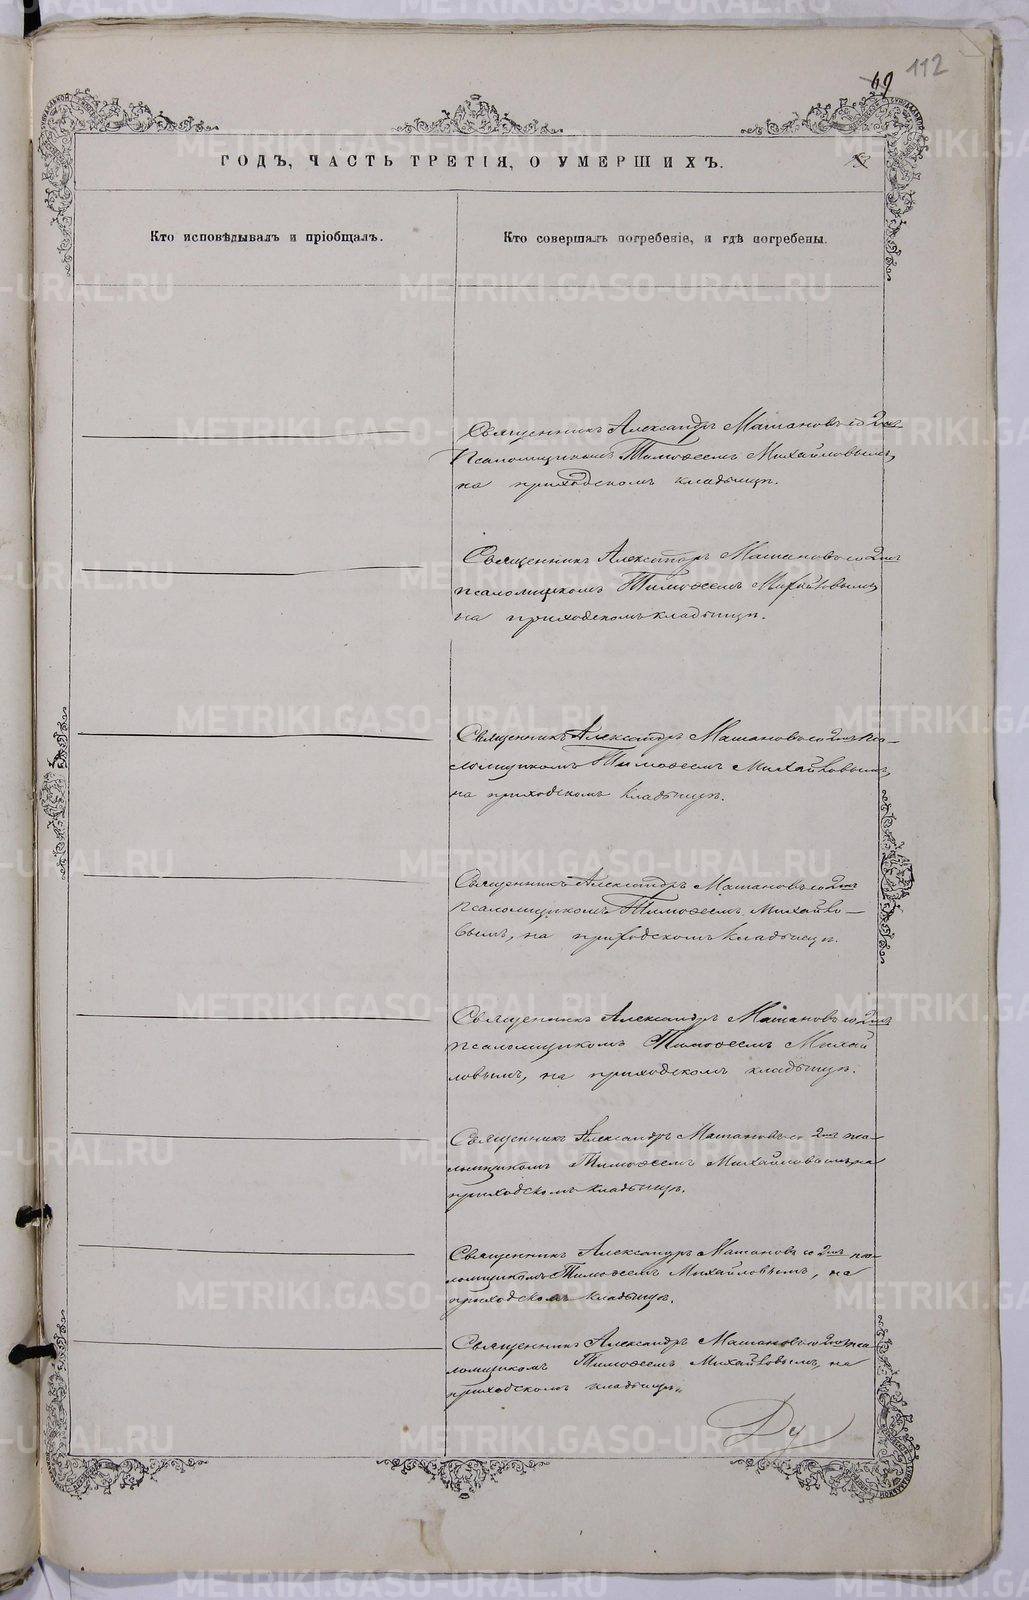 69 112
ГОДЪ, ЧАСТЬ ТРЕТІЯ, О УМЕРШИХЪ.
Кто исповѣдывалъ и пріобщалъ.
Кто совершалъ погребеніе, и гдѣ погребены.
Священникъ Александръ Машановъ со 2мъ
Псаломщикомъ Тимоѳеемъ Михайловымъ,
на приходскомъ кладбищѣ.
Священникъ Александръ Машановъ со 2мъ
псаломщикомъ Тимоѳеемъ Михайловымъ
на приходскомъ кладбищѣ.
Священникъ Александръ Машановъ со 2мъ пса-
ломщикомъ Тимоѳеемъ Михайловымъ,
на приходскомъ кладбищѣ.
Священникъ Александръ Машановъ со 2мъ
псаломщикомъ Тимоѳеемъ Михайло-
вымъ, на приходскомъ кладбищѣ.
Священникъ Александръ Машановъ со 2мъ
псаломщикомъ Тимоѳеемъ Михай
ловымъ, на приходскомъ кладбищѣ.
Священникъ Александръ Машановъ со 2мъ пса-
ломщикомъ Тимоѳеемъ Михайловымъ на
приходскомъ кладбищѣ.
Священникъ Александръ Машановъ со 2мъ пса-
ломщикомъ Тимоѳеемъ Михайловымъ, на
приходскомъ кладбищѣ.
Священникъ Александръ Машановъ со 2мъ пса-
ломщикомъ Тимоѳеемъ Михайловымъ, на
приходскомъ кладбищѣ.
Ду
METRIKI.GASO-URAL.RU